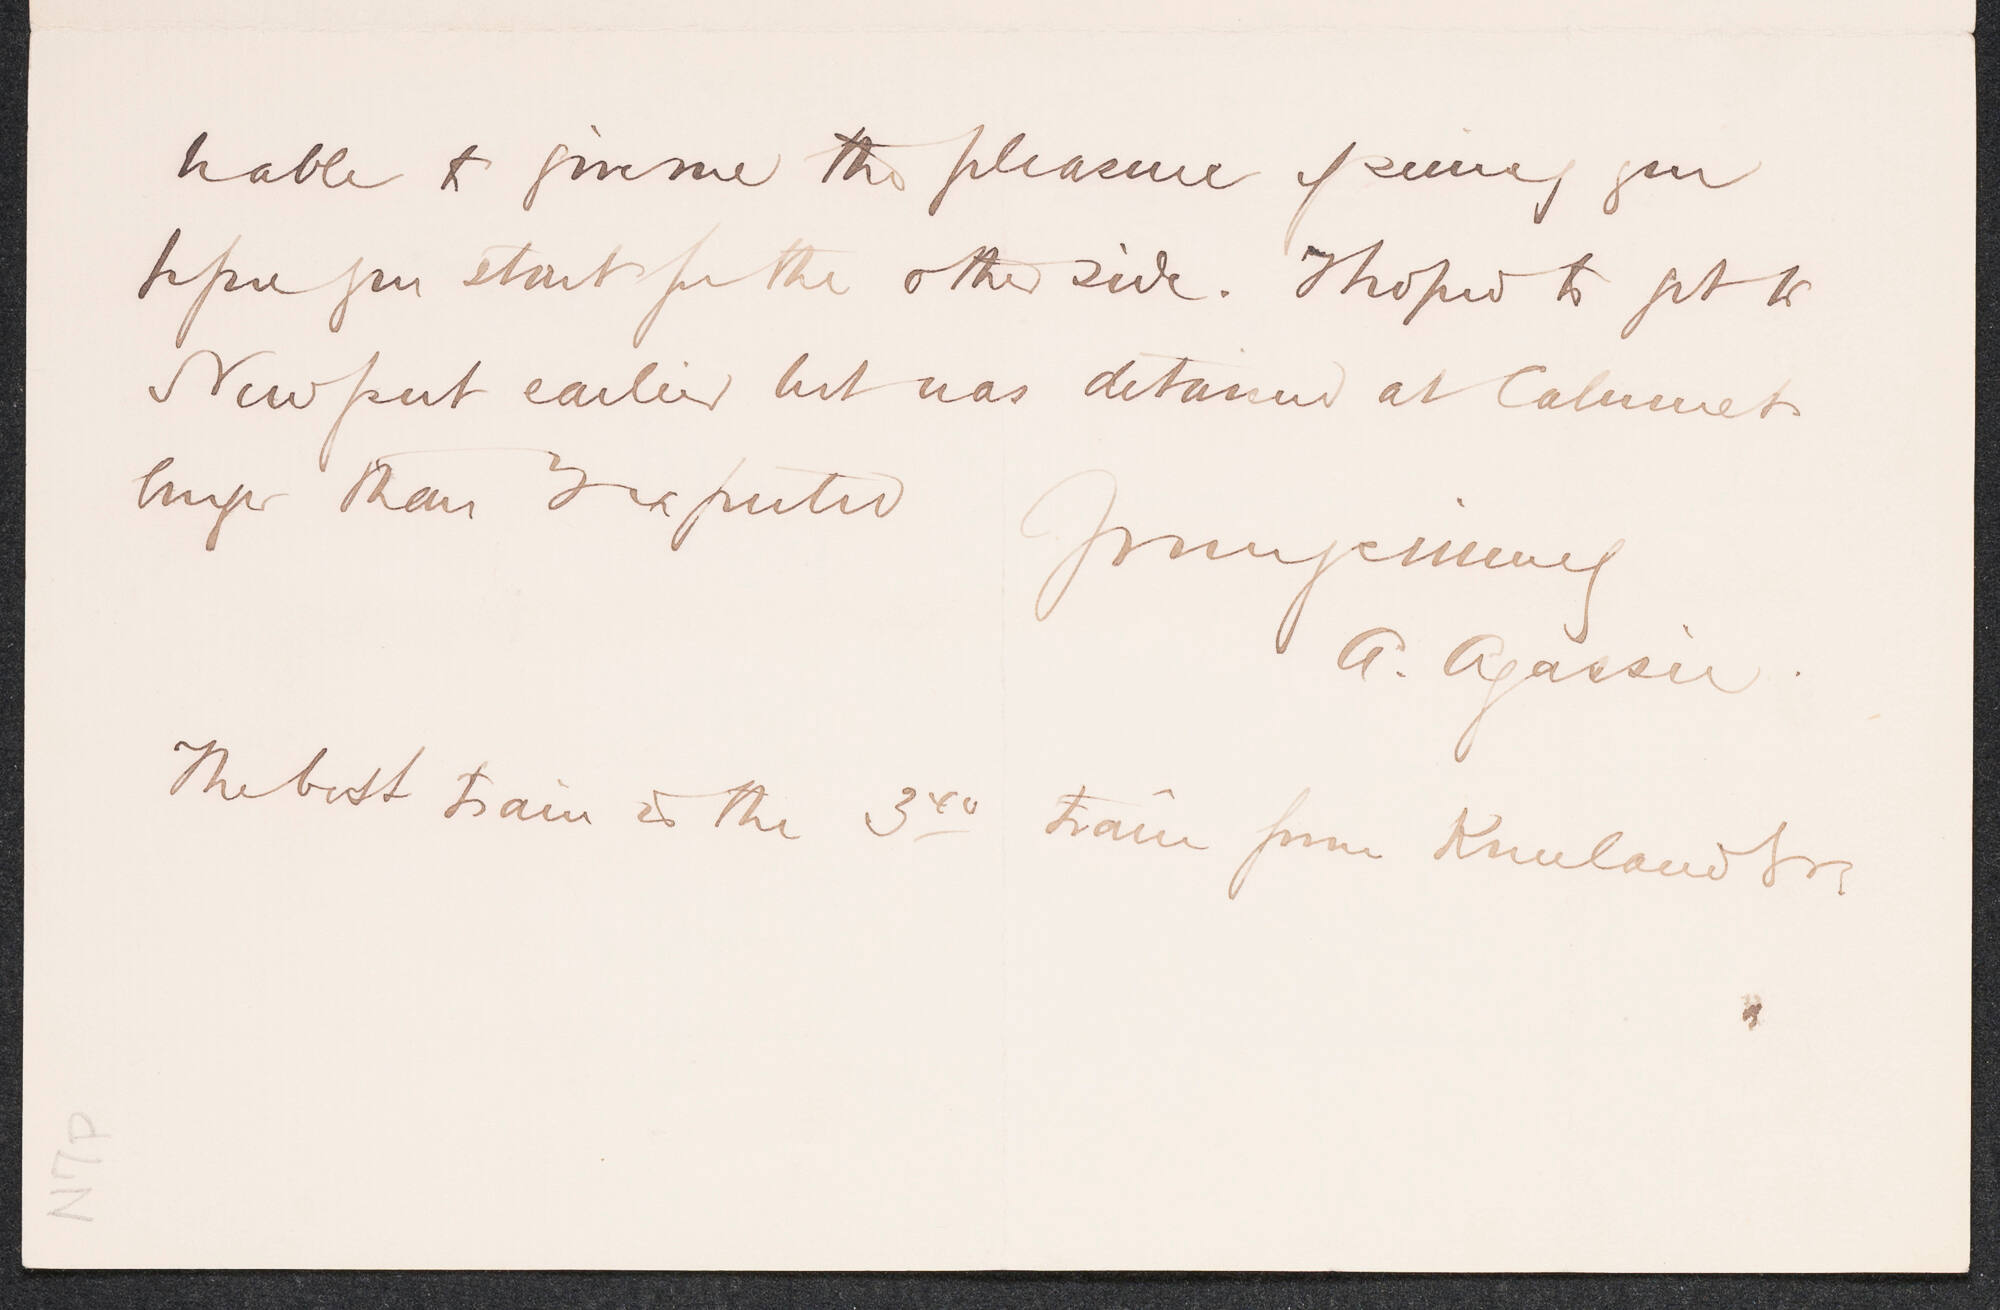 be able to give me the pleasure of seeing you
before you start for the other side. I hoped to get to
Newport earlier but was detained at Calumet
longer than I expected
Yours sincerely
A. Agassiz.
The best train is the 3 40 train from Kneeland St.
N7P